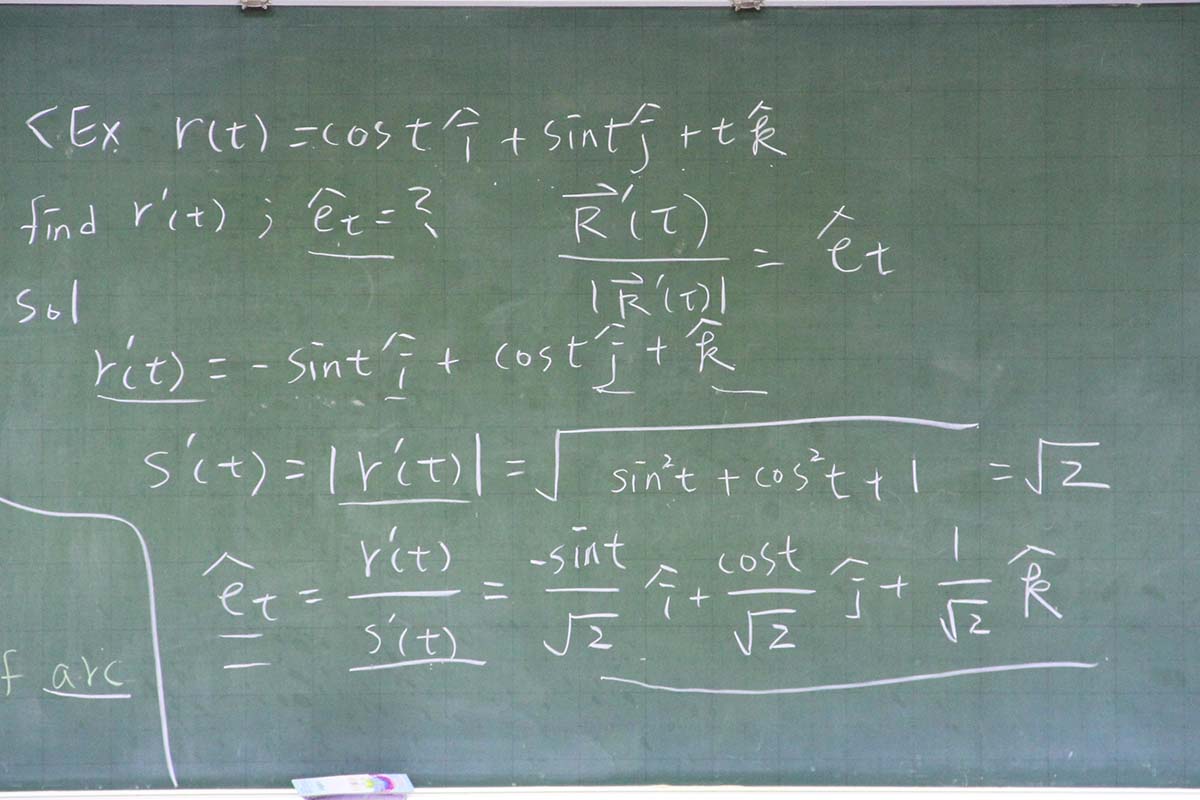 <Ex r(t) = cos t î + sin t ĵ + t k̂
find r'(t) ; ê_t = ? R⃗'(τ) / |R⃗'(τ)| = ê_t
sol
r'(t) = - sin t î + cos t ĵ + k̂
s'(t) = |r'(t)| = √(sin²t + cos²t + 1) = √2
ê_t = r'(t) / s'(t) = -sin t / √2 î + cos t / √2 ĵ + 1 / √2 k̂
f arc